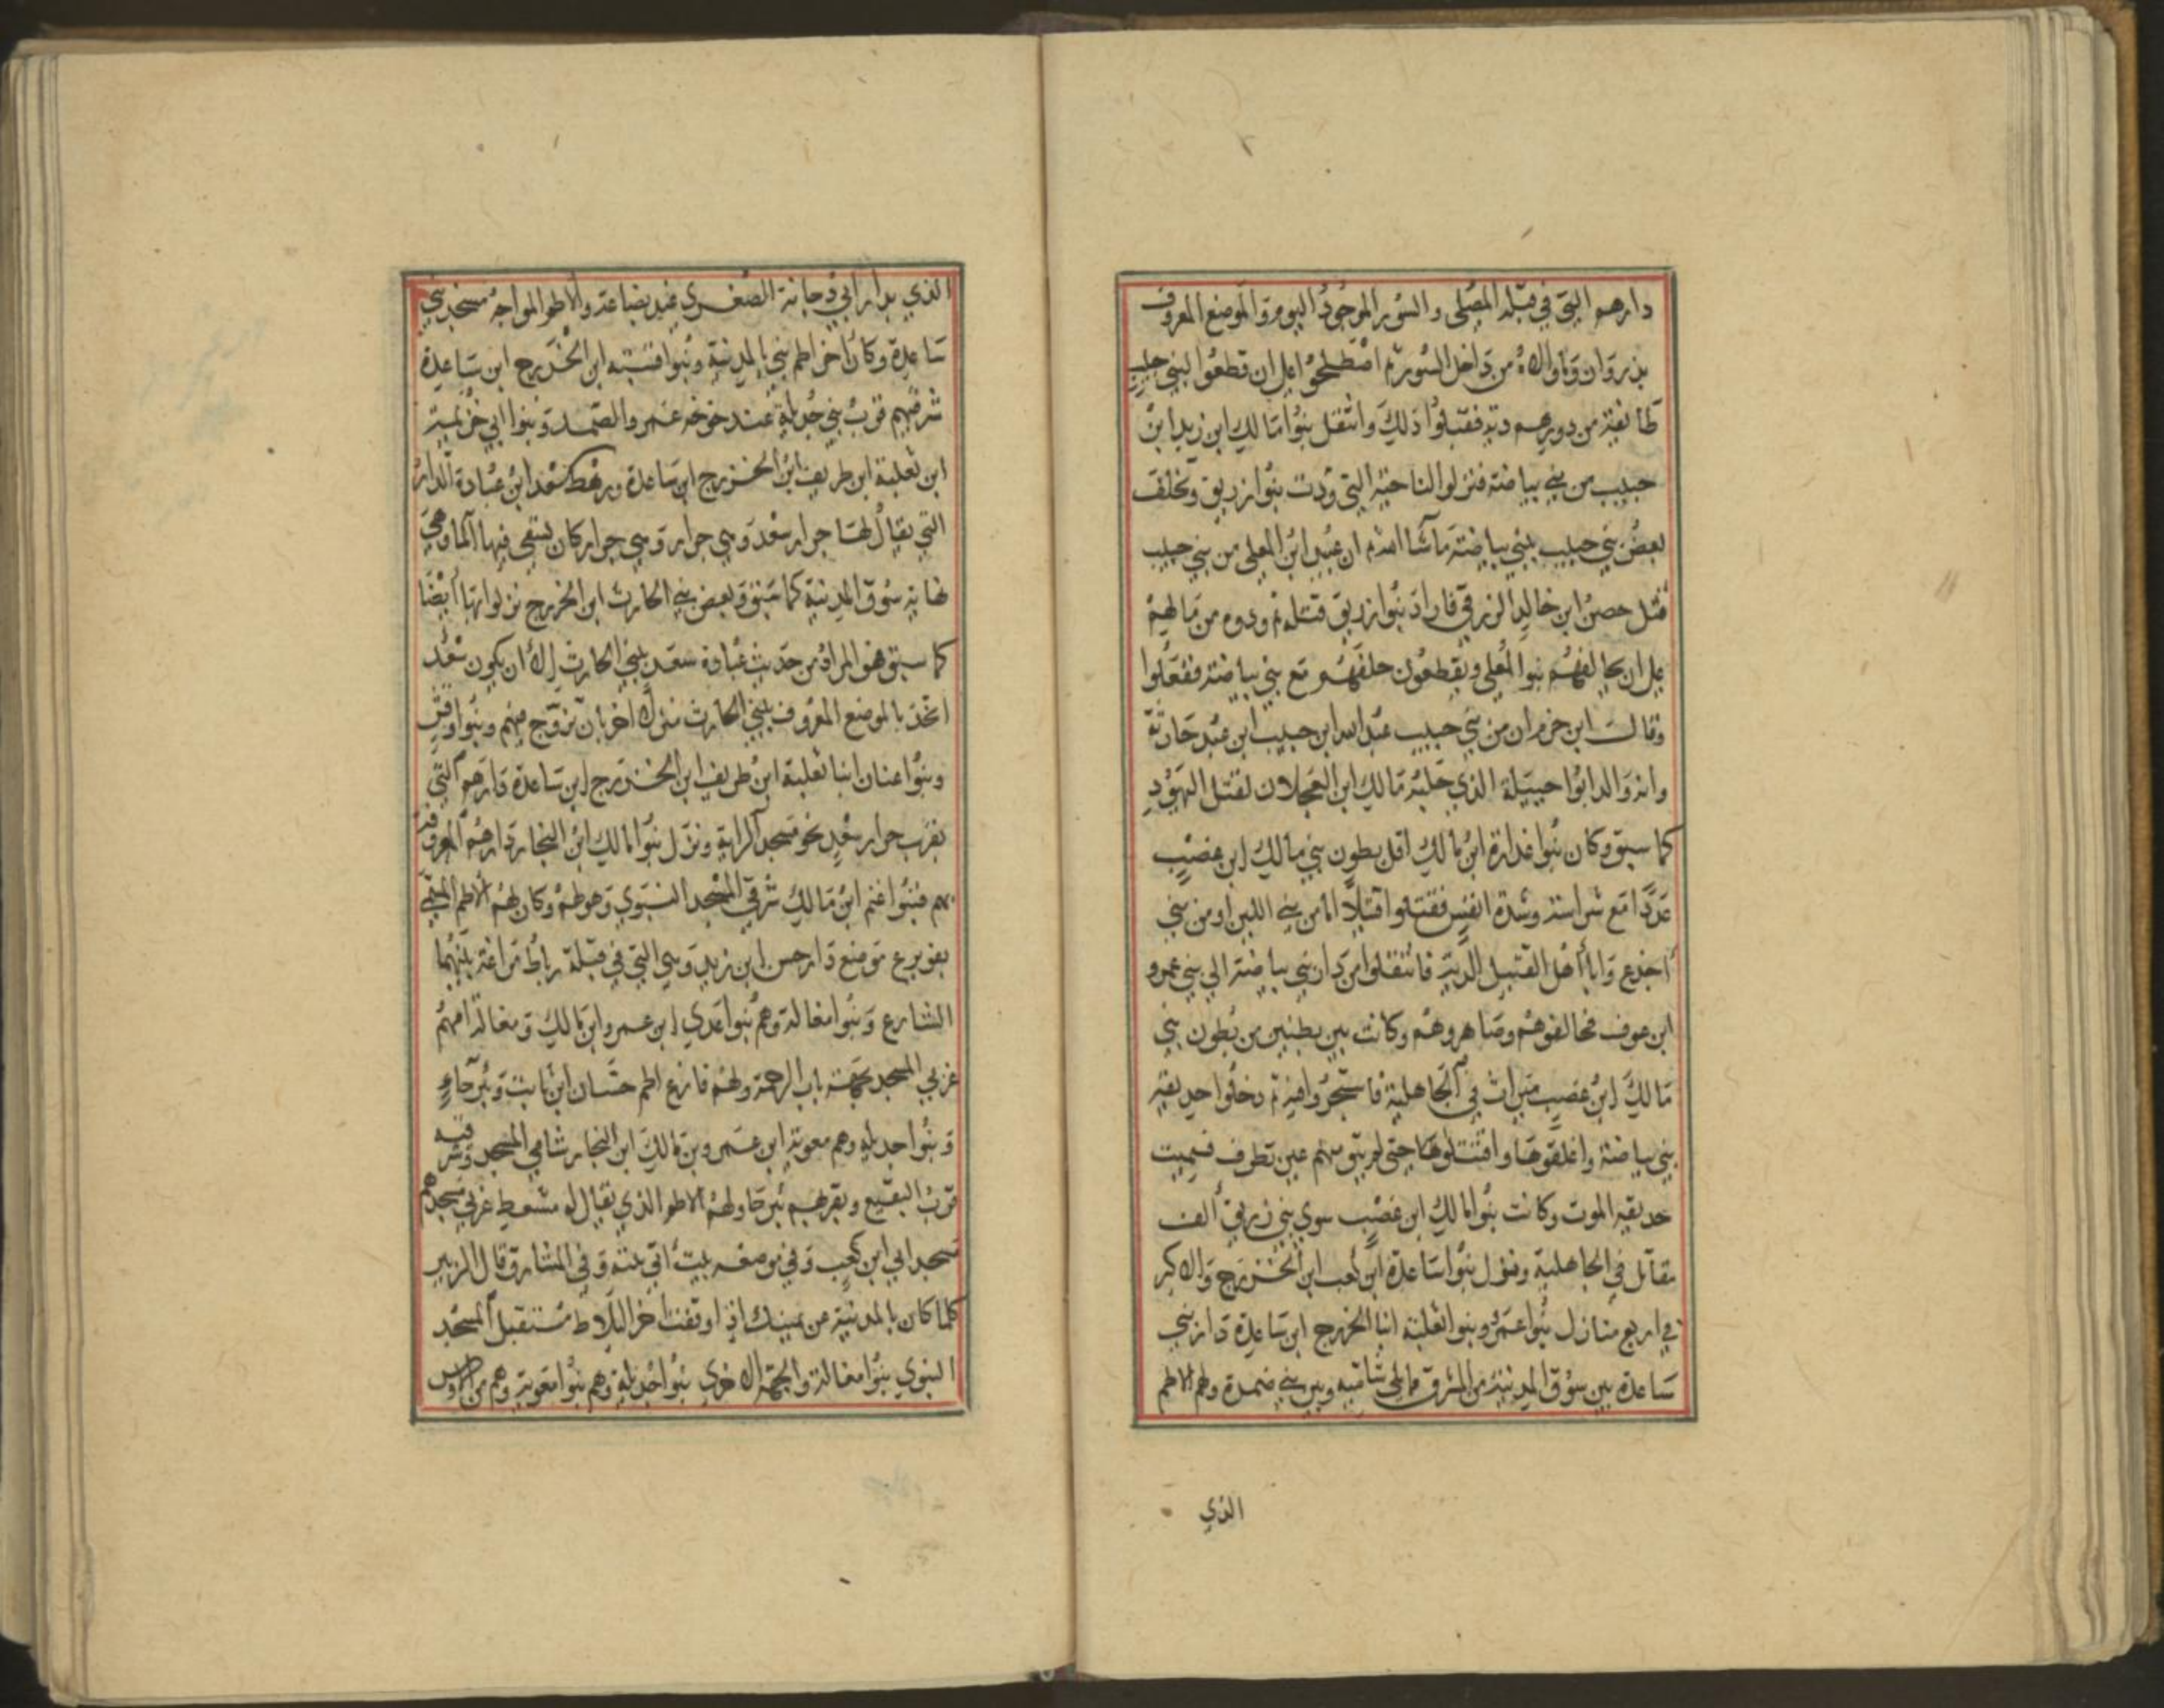 دارهم التي في قبلة المصلى والسور الموجود اليوم والموضع المعروف
بذروان وما والاه من داخل السور ثم اصطلحوا على ان قطعوا لبني حبيب
طائفة من دورهم دية فقبلوا ذلك وانتقل بنوا مالك ابن زيد ابن
حبيب من بني بياضة فنزلوا الناحية التي ودت بنوا زريق وتخلف
بعض بني حبيب ببني بياضة ماشا الله ثم ان عبيد ابن المعلى من بني حبيب
قتل حصن ابن خالد الزرقي فاراد بنوا زريق قتله ثم ودوه من مالهم
على ان يحالفهم بنوا المعلى ويقطعون حلفهم مع بني بياضة ففعلوا
وقال ابن حزم ان من بني حبيب عبد الله ابن حبيب ابن عبد حارثة
وانه والد ابوا جبيلة الذي جلبه مالك ابن العجلان لقتل اليهود
كما سبق وكان بنوا غدارة ابن مالك اقل بطون بني مالك ابن غضب
عددا مع شراسة وشدة انفس فقتلوا قتيلا اما من بني اللين او من بني
اجدع وابا اهل القتيل الدية فانتقلوا من دار بني بياضة الي بني عمرو
ابن عوف فحالفوهم وصاهروهم وكانت بين بطنين من بطون بني
مالك ابن غضب ميراث في الجاهلية فاشتجروا فيه ثم دخلوا حديقة
بني بياضة واغلقوها واقتتلوها حتى لم يبق منهم عين تطرف فسميت
حديقة الموت وكانت بنوا مالك ابن غضب سوى بني زريق الف
مقاتل في الجاهلية ونزل بنوا ساعدة ابن كعب ابن الخزرج والاكبر
في اربع منازل بنوا عمرو وبنوا ثعلبة ابنا الخزرج ابن ساعدة دار بني
ساعدة بين سوق المدينة من المشرق مما يلي شاميه وبين بني ضمرة ولهم الاطم
الذي
الذي بدار ابي دجانة الصغرى عند بضاعة والاطم المواجه مسجد بني
ساعدة وكان اخر اطم بني بالمدينة وبنوا قشبه ابن الخزرج ابن ساعدة
شرقيهم قرب بني جديلة عند خوخة عمرو الصمد وبنوا ابي خزيمة
ابن ثعلبة ابن طريف ابن الخزرج ابن ساعدة ورهط سعد ابن عبادة الدار
التي يقال لها جرار سعد وهي جرار وهي جرار كان يسقى فيها الما وهي
نهاية سوق المدينة كما سبق وبعض بني الحارث ابن الخزرج نزلوا بها ايضا
كما سبق فهو المراد من حديث عبادة سعد ببني الحارث الا ان يكون سعد
اتخذ بالموضع المعروف ببني الحارث منزلا اخر بان تزوج منهم وبنوا وقش
وبنوا عنان ابنا ثعلبة ابن طريف ابن الخزرج ابن ساعدة دارهم التي
بقرب جرار سعد نحو مسجد الراية ونزل بنوا مالك ابن النجار دارهم المعروفة
بهم فبنوا غنم ابن مالك شرقي المسجد النبوي وهو لهم وكان لهم الاطم المسمى
بفويرع موضع دار حسن ابن زيد وهي التي في قبلة رباط مراغة بينهما
الشارع وبنوا مغالة وهم بنوا عدي ابن عمرو ابن مالك ومغالة امهم
غربي المسجد بجهة باب الرحمة ولهم فارع اطم حسان ابن ثابت وبئر حاء
وبنوا جديلة وهم معوية ابن عمرو بن مالك ابن النجار شامي المسجد وشرقيه
قرب البقيع وبقربهم بئر حا ولهم الاطم الذي يقال له مشعط غربي مسجدهم
مسجد ابي ابن كعب وفي موضعه بيت ابي نبته وفي المشارق قال الزبير
كلما كان بالمدينة عن يمينك اذا وقفت اخر البلاط مستقبل المسجد
النبوي بنوا مغالة والجهة الاخرى بنوا جديلة وهم بنوا معوية وهم من الاوس